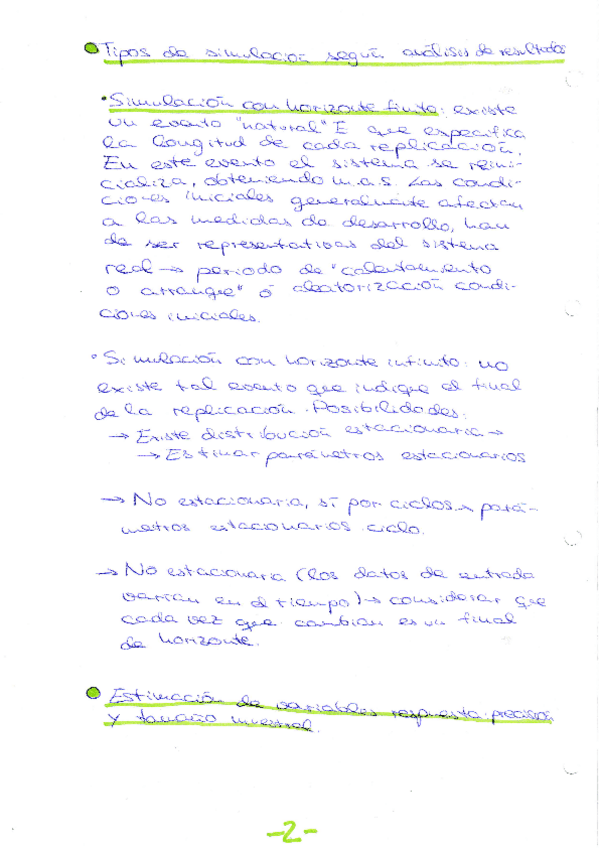 Tipos de simulación según análisis de resultados
· Simulación con horizonte finito: existe
un evento "natural" E que especifica
la longitud de cada replicación.
En este evento el sistema se reini-
cializa, obteniendo m.a.s. Las condi-
ciones iniciales generalmente afectan
a las medidas de desarrollo, han
de ser representativas del sistema
real → periodo de "calentamiento
o arranque" ó aleatorización condi-
ciones iniciales.
· Simulación con horizonte infinito: no
existe tal evento que indique el final
de la replicación. Posibilidades:
→ Existe distribución estacionaria →
→ Estimar parámetros estacionarios
→ No estacionaria, sí por ciclos → pará-
metros estacionarios ciclo.
→ No estacionaria (los datos de entrada
varían en el tiempo) → considerar que
cada vez que cambian es un final
de horizonte.
Estimación de variables respuesta: precisión
y tamaño muestral.
-2-